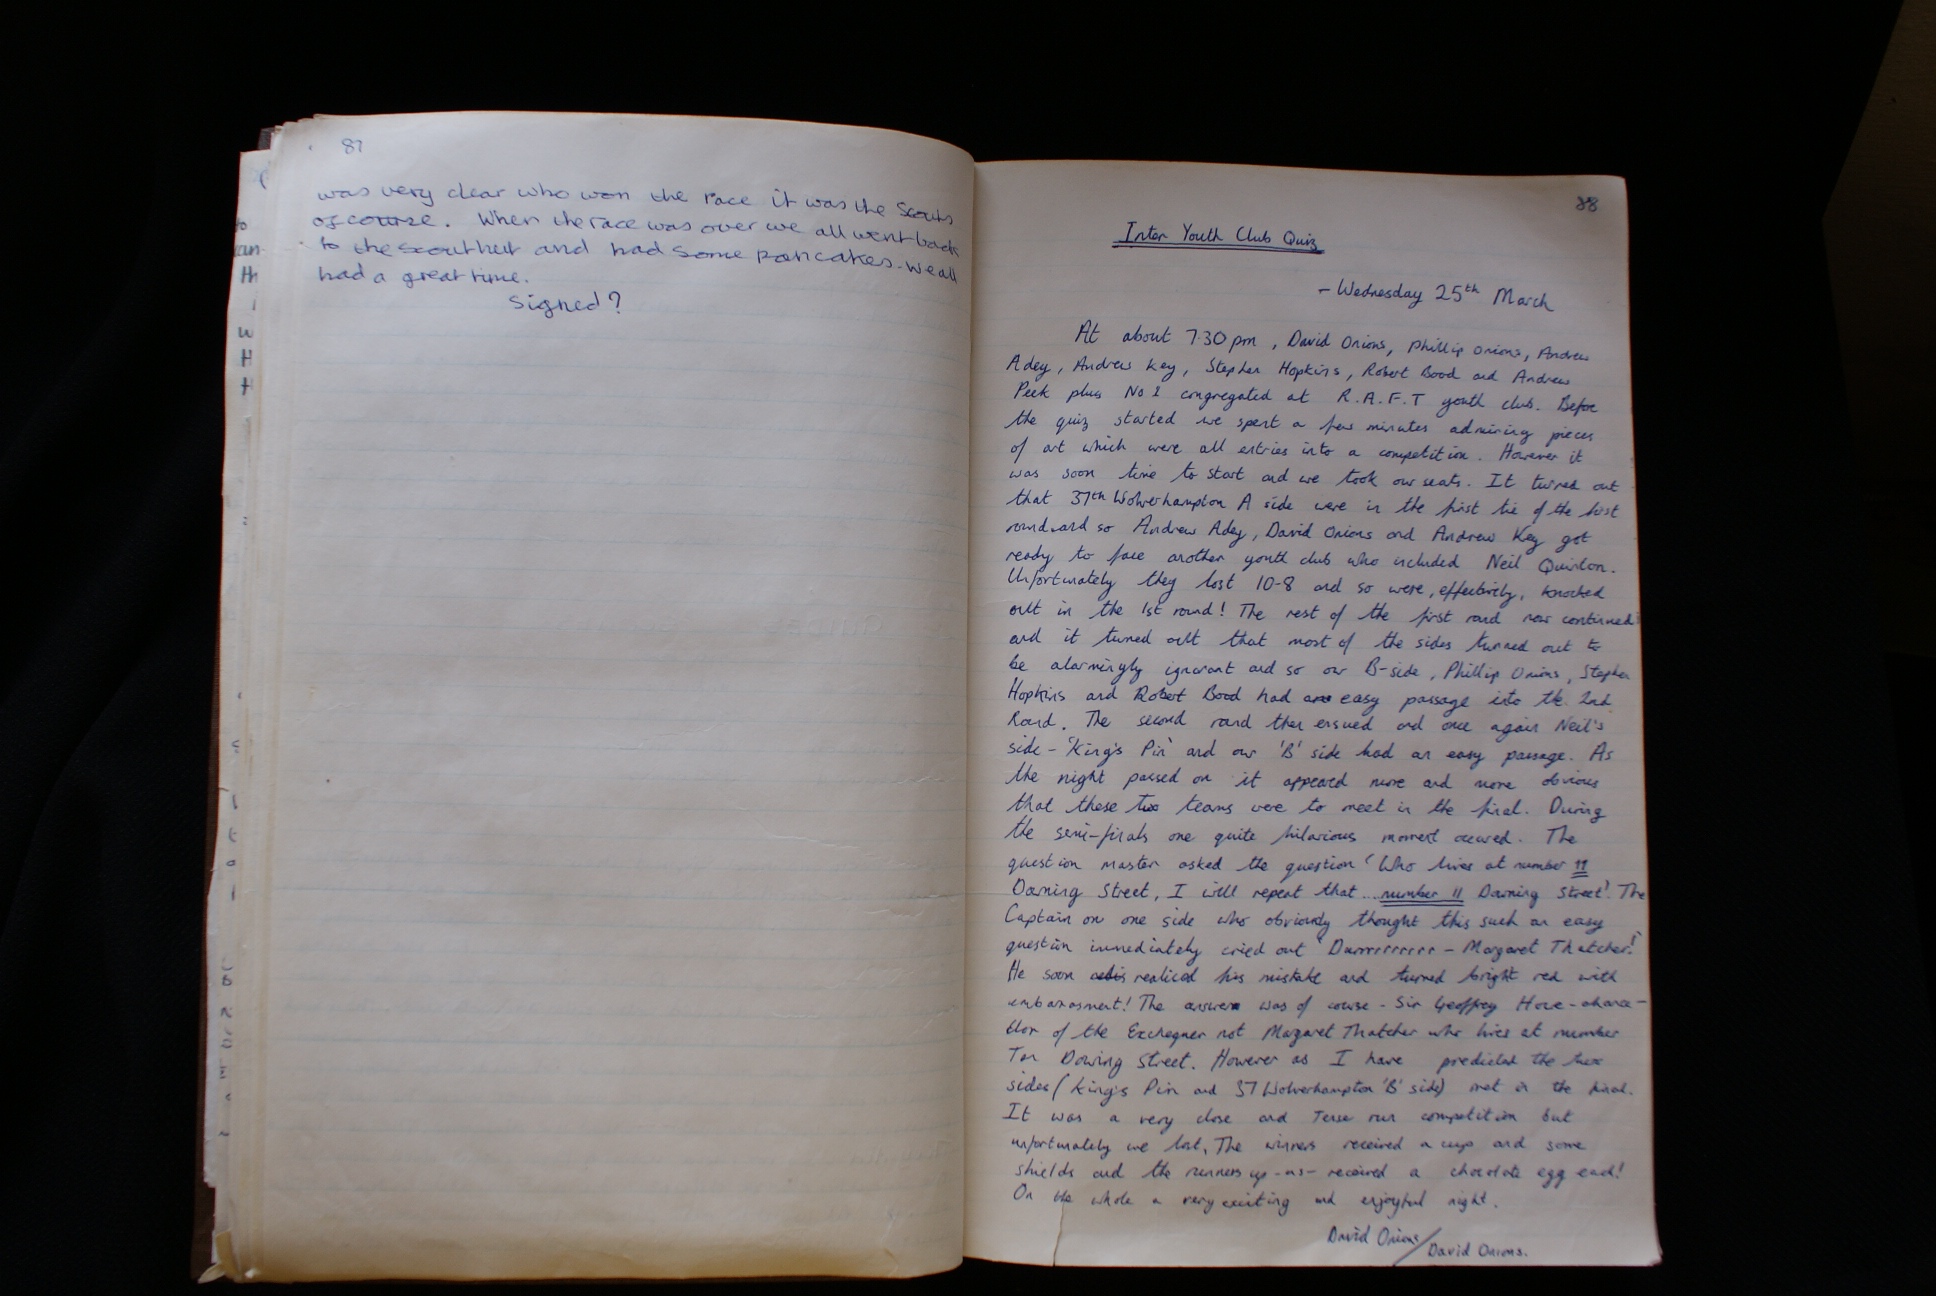 87
was very clear who won the race it was the Scouts
of course. When the race was over we all went back
to the scout hut and had some pancakes. We all
had a great time.
Signed?
88
Inter Youth Club Quiz
- Wednesday 25th March
At about 7.30 pm, David Onions, Phillip Onions, Andrew
Adey, Andrew Key, Stephen Hopkins, Robert Bood and Andrew
Peek plus No 1 congregated at R.A.F.T youth club. Before
the quiz started we spent a few minutes admiring pieces
of art which were all entries into a competition. However it
was soon time to start and we took our seats. It turned out
that 37th Wolverhampton A side were in the first tie of the first
round and so Andrew Adey, David Onions and Andrew Key got
ready to face another youth club who included Neil Quinton.
Unfortunately they lost 10-8 and so were, effectively, knocked
out in the 1st round! The rest of the first round now continued
and it turned out that most of the sides turned out to
be alarmingly ignorant and so our B-side, Phillip Onions, Stephen
Hopkins and Robert Bood had an easy passage into the 2nd
Round. The second round then ensued and once again Neil's
side - 'King's Pin' and our 'B' side had an easy passage. As
the night passed on it appeared more and more obvious
that these two teams were to meet in the final. During
the semi-finals one quite hilarious moment occured. The
question master asked the question 'Who lives at number 11
Downing Street, I will repeat that ... number 11 Downing Street'. The
Captain on one side who obviously thought this such an easy
question immediately cried out 'Durrrrrrrrrr - Margaret Thatcher!'
He soon realised his mistake and turned bright red with
embarasment! The answer was of course - Sir Geoffrey Howe - chance-
llor of the Exchequer not Margaret Thatcher who lives at number
Ten Downing Street. However as I have predicted the two
sides (King's Pin and 37 Wolverhampton 'B' side) met in the final.
It was a very close and Tense run competition but
unfortunately we lost. The winners received a cup and some
shields and the runners up - us - received a chocolate egg each!
On the whole a very exciting and enjoyful night.
David Onions / David Onions.